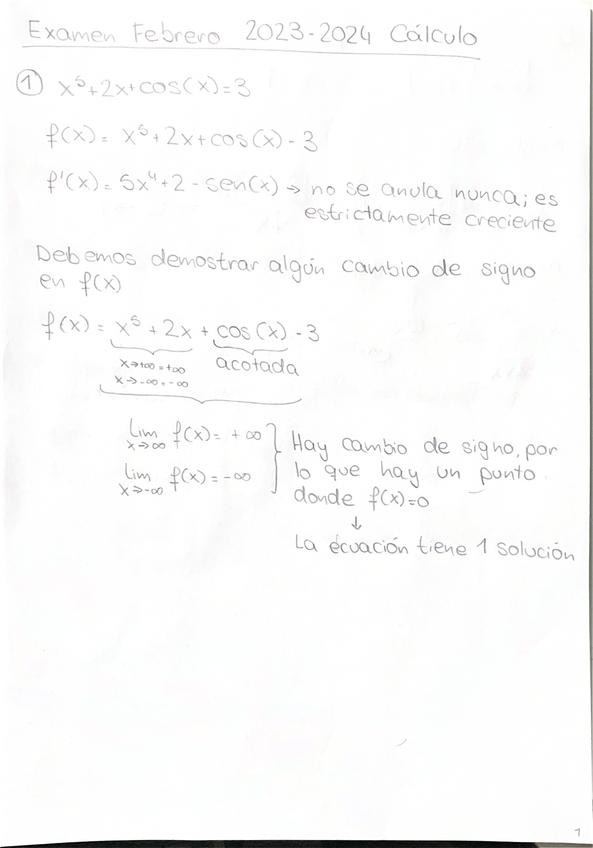 Examen Febrero 2023-2024 Cálculo
① x⁵+2x+cos(x)=3
f(x)= x⁵+2x+cos(x)-3
f'(x)= 5x⁴+2-sen(x) → no se anula nunca; es
estrictamente creciente
Debemos demostrar algún cambio de signo
en f(x)
f(x)= x⁵+2x+cos(x)-3
x→+∞=+∞ acotada
x→-∞=-∞
lim x→∞ f(x)= +∞ Hay cambio de signo, por
lo que hay un punto
lim x→-∞ f(x)=-∞ donde f(x)=0
↓
La ecuación tiene 1 solución
1